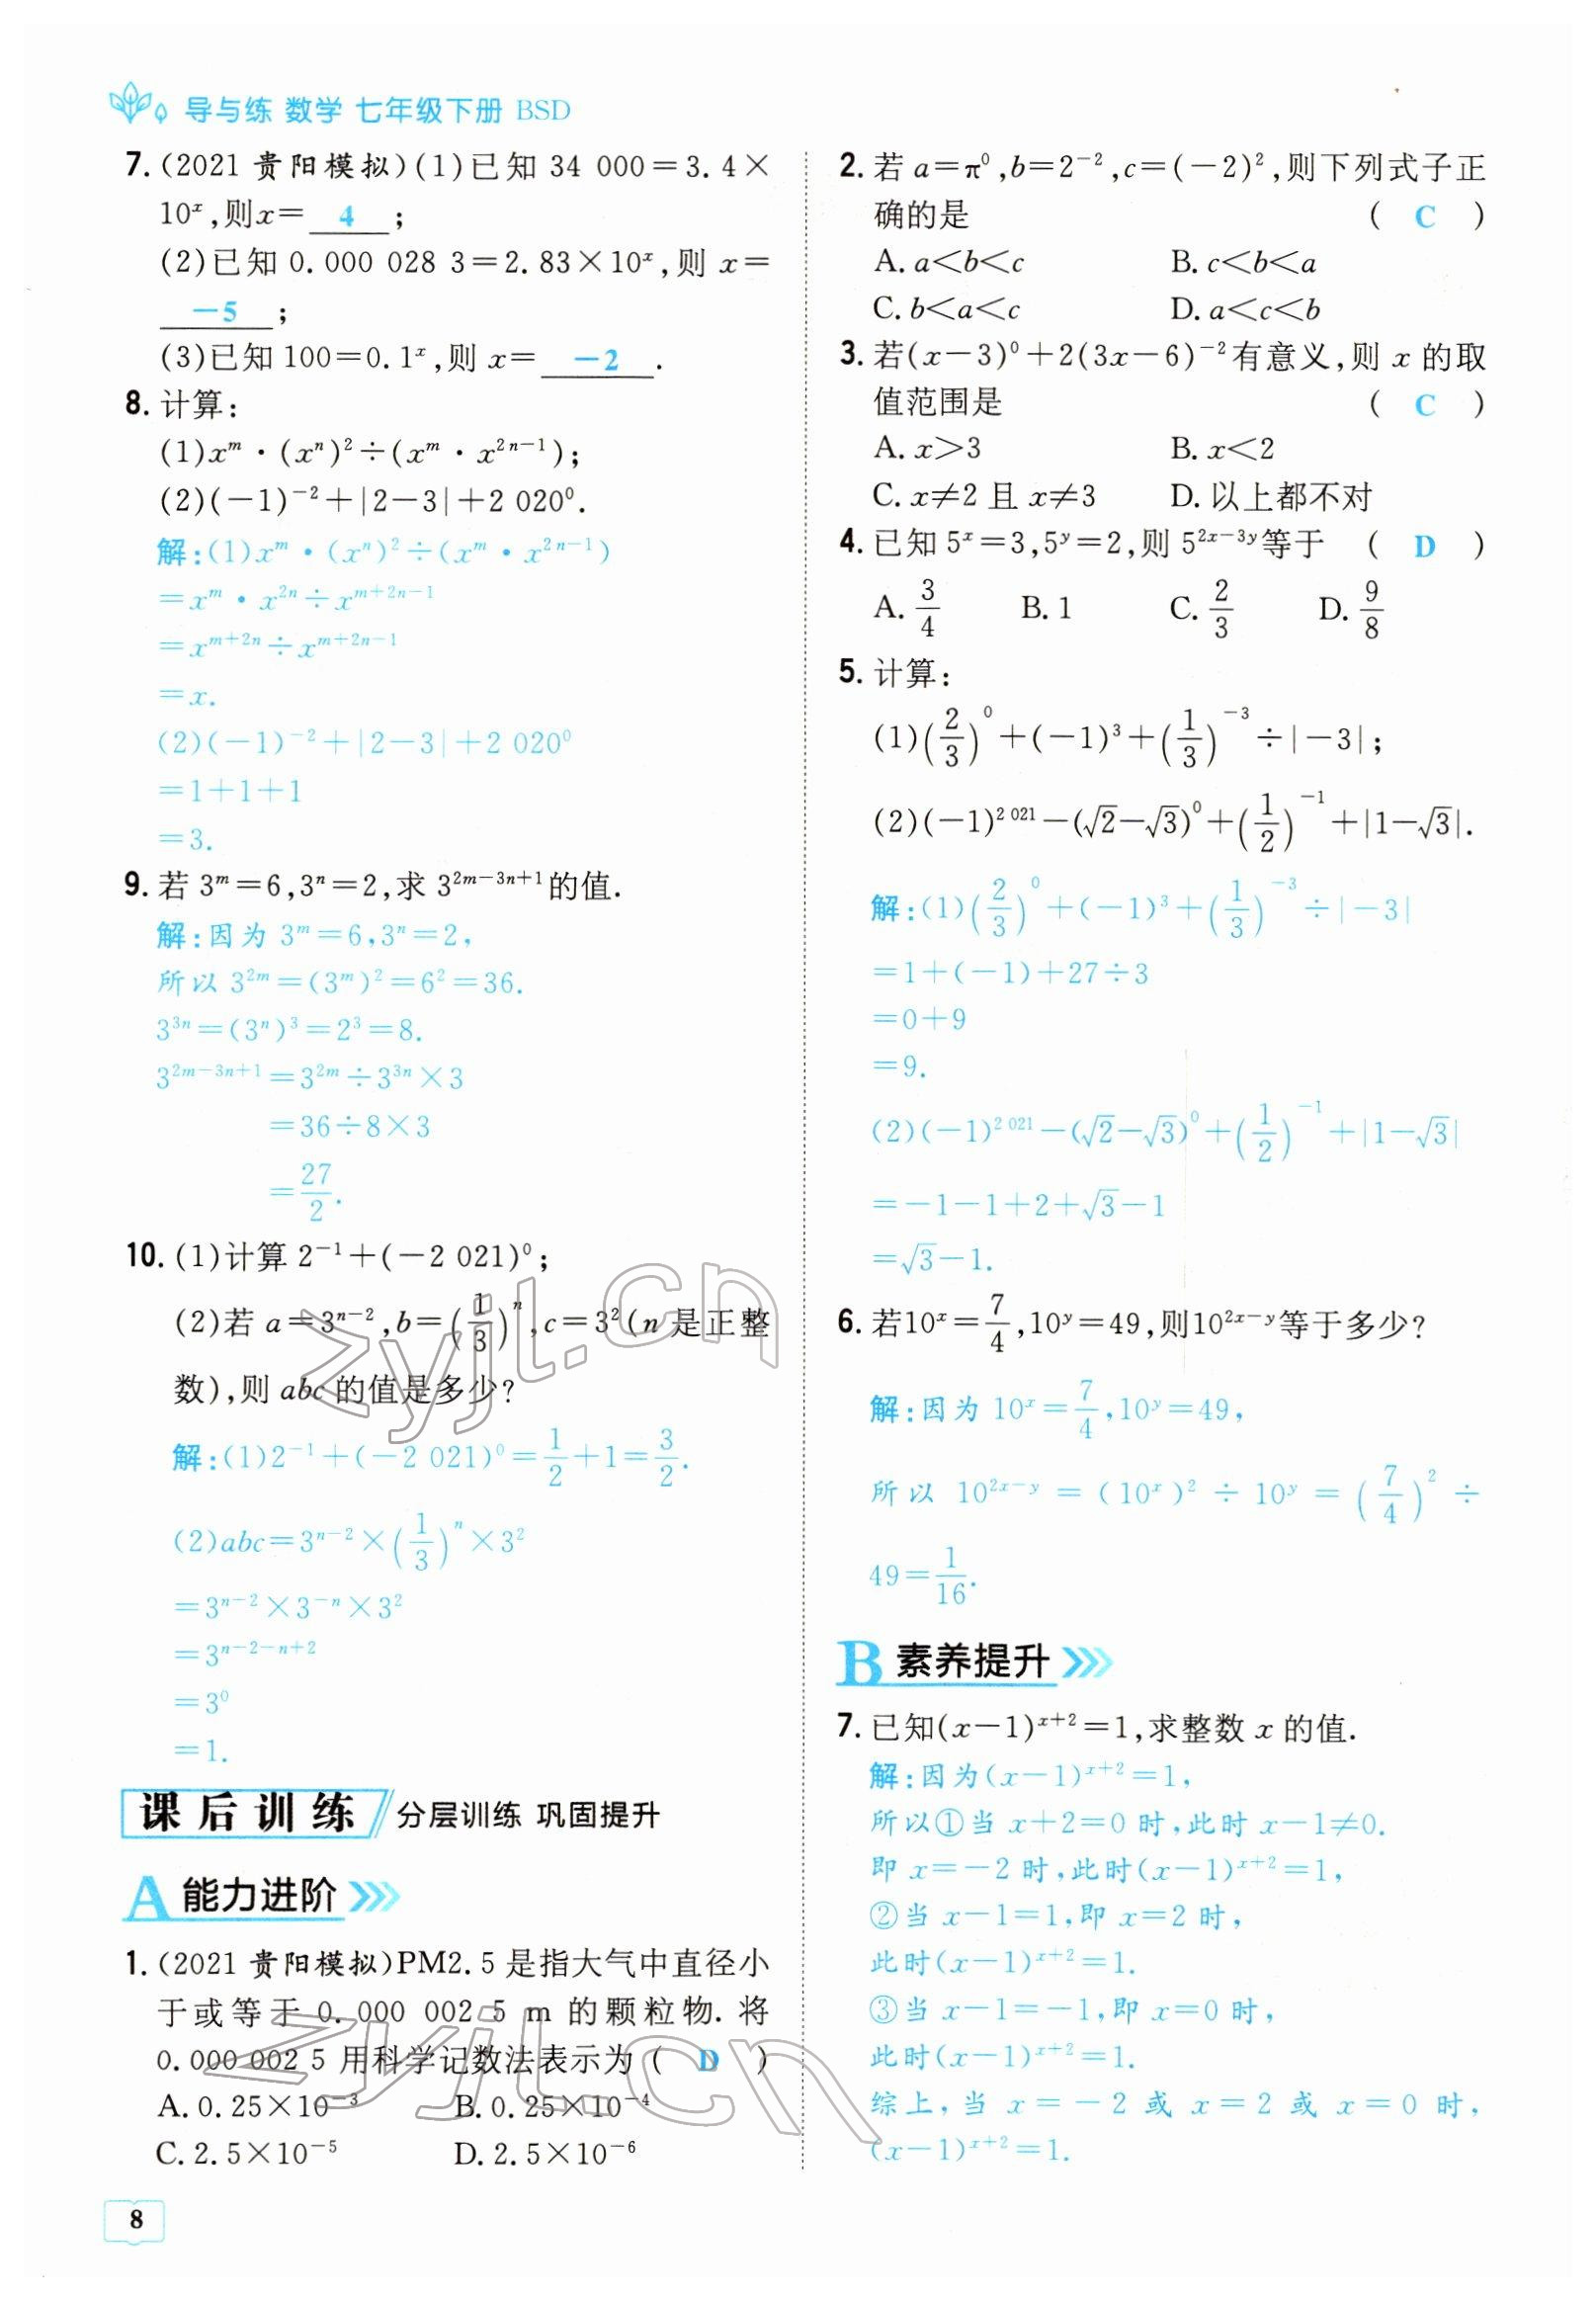 导与练 数学 七年级下册 BSD
7. (2021 贵阳模拟)(1)已知 34 000=3.4×
10ˣ,则x= 4 ;
(2)已知 0.000 028 3=2.83×10ˣ,则 x=
-5 ;
(3)已知 100=0.1ˣ,则 x= -2 .
8. 计算:
(1)xᵐ·(xⁿ)²÷(xᵐ·x²ⁿ⁻¹);
(2)(-1)⁻²+|2-3|+2 020⁰.
解:(1)xᵐ·(xⁿ)²÷(xᵐ·x²ⁿ⁻¹)
=xᵐ·x²ⁿ÷xᵐ⁺²ⁿ⁻¹
=xᵐ⁺²ⁿ÷xᵐ⁺²ⁿ⁻¹
=x.
(2)(-1)⁻²+|2-3|+2 020⁰
=1+1+1
=3.
9. 若 3ᵐ=6,3ⁿ=2,求 3²ᵐ⁻³ⁿ⁺¹的值.
解:因为 3ᵐ=6,3ⁿ=2,
所以 3²ᵐ=(3ᵐ)²=6²=36.
3³ⁿ=(3ⁿ)³=2³=8.
3²ᵐ⁻³ⁿ⁺¹=3²ᵐ÷3³ⁿ×3
=36÷8×3
=27/2.
10. (1)计算 2⁻¹+(-2 021)⁰;
(2)若 a=3ⁿ⁻²,b=(1/3)ⁿ,c=3²(n 是正整
数),则 abc 的值是多少?
解:(1)2⁻¹+(-2 021)⁰=1/2+1=3/2.
(2)abc=3ⁿ⁻²×(1/3)ⁿ×3²
=3ⁿ⁻²×3⁻ⁿ×3²
=3ⁿ⁻²⁻ⁿ⁺²
=3⁰
=1.
课后训练 分层训练 巩固提升
A 能力进阶
1. (2021 贵阳模拟)PM2.5 是指大气中直径小
于或等于 0.000 002 5 m 的颗粒物.将
0.000 002 5 用科学记数法表示为 ( D )
A. 0.25×10⁻³ B. 0.25×10⁻⁴
C. 2.5×10⁻⁵ D. 2.5×10⁻⁶
8
2. 若 a=π⁰,b=2⁻²,c=(-2)²,则下列式子正
确的是 ( C )
A. a<b<c B. c<b<a
C. b<a<c D. a<c<b
3. 若(x-3)⁰+2(3x-6)⁻²有意义,则 x 的取
值范围是 ( C )
A. x>3 B. x<2
C. x≠2 且 x≠3 D. 以上都不对
4. 已知 5ˣ=3,5ʸ=2,则 5²ˣ⁻³ʸ等于 ( D )
A. 3/4 B. 1 C. 2/3 D. 9/8
5. 计算:
(1)(2/3)⁰+(-1)³+(1/3)⁻³÷|-3|;
(2)(-1)²⁰²¹-(√2-√3)⁰+(1/2)⁻¹+|1-√3|.
解:(1)(2/3)⁰+(-1)³+(1/3)⁻³÷|-3|
=1+(-1)+27÷3
=0+9
=9.
(2)(-1)²⁰²¹-(√2-√3)⁰+(1/2)⁻¹+|1-√3|
=-1-1+2+√3-1
=√3-1.
6. 若10ˣ=7/4,10ʸ=49,则10²ˣ⁻ʸ等于多少?
解:因为 10ˣ=7/4,10ʸ=49,
所以 10²ˣ⁻ʸ=(10ˣ)²÷10ʸ=(7/4)²÷
49=1/16.
B 素养提升
7. 已知(x-1)ˣ⁺²=1,求整数 x 的值.
解:因为(x-1)ˣ⁺²=1,
所以①当 x+2=0 时,此时 x-1≠0.
即 x=-2 时,此时(x-1)ˣ⁺²=1,
②当 x-1=1,即 x=2 时,
此时(x-1)ˣ⁺²=1.
③当 x-1=-1,即 x=0 时,
此时(x-1)ˣ⁺²=1.
综上,当 x=-2 或 x=2 或 x=0 时,
(x-1)ˣ⁺²=1.
zyjl.cn
zyjl.cn